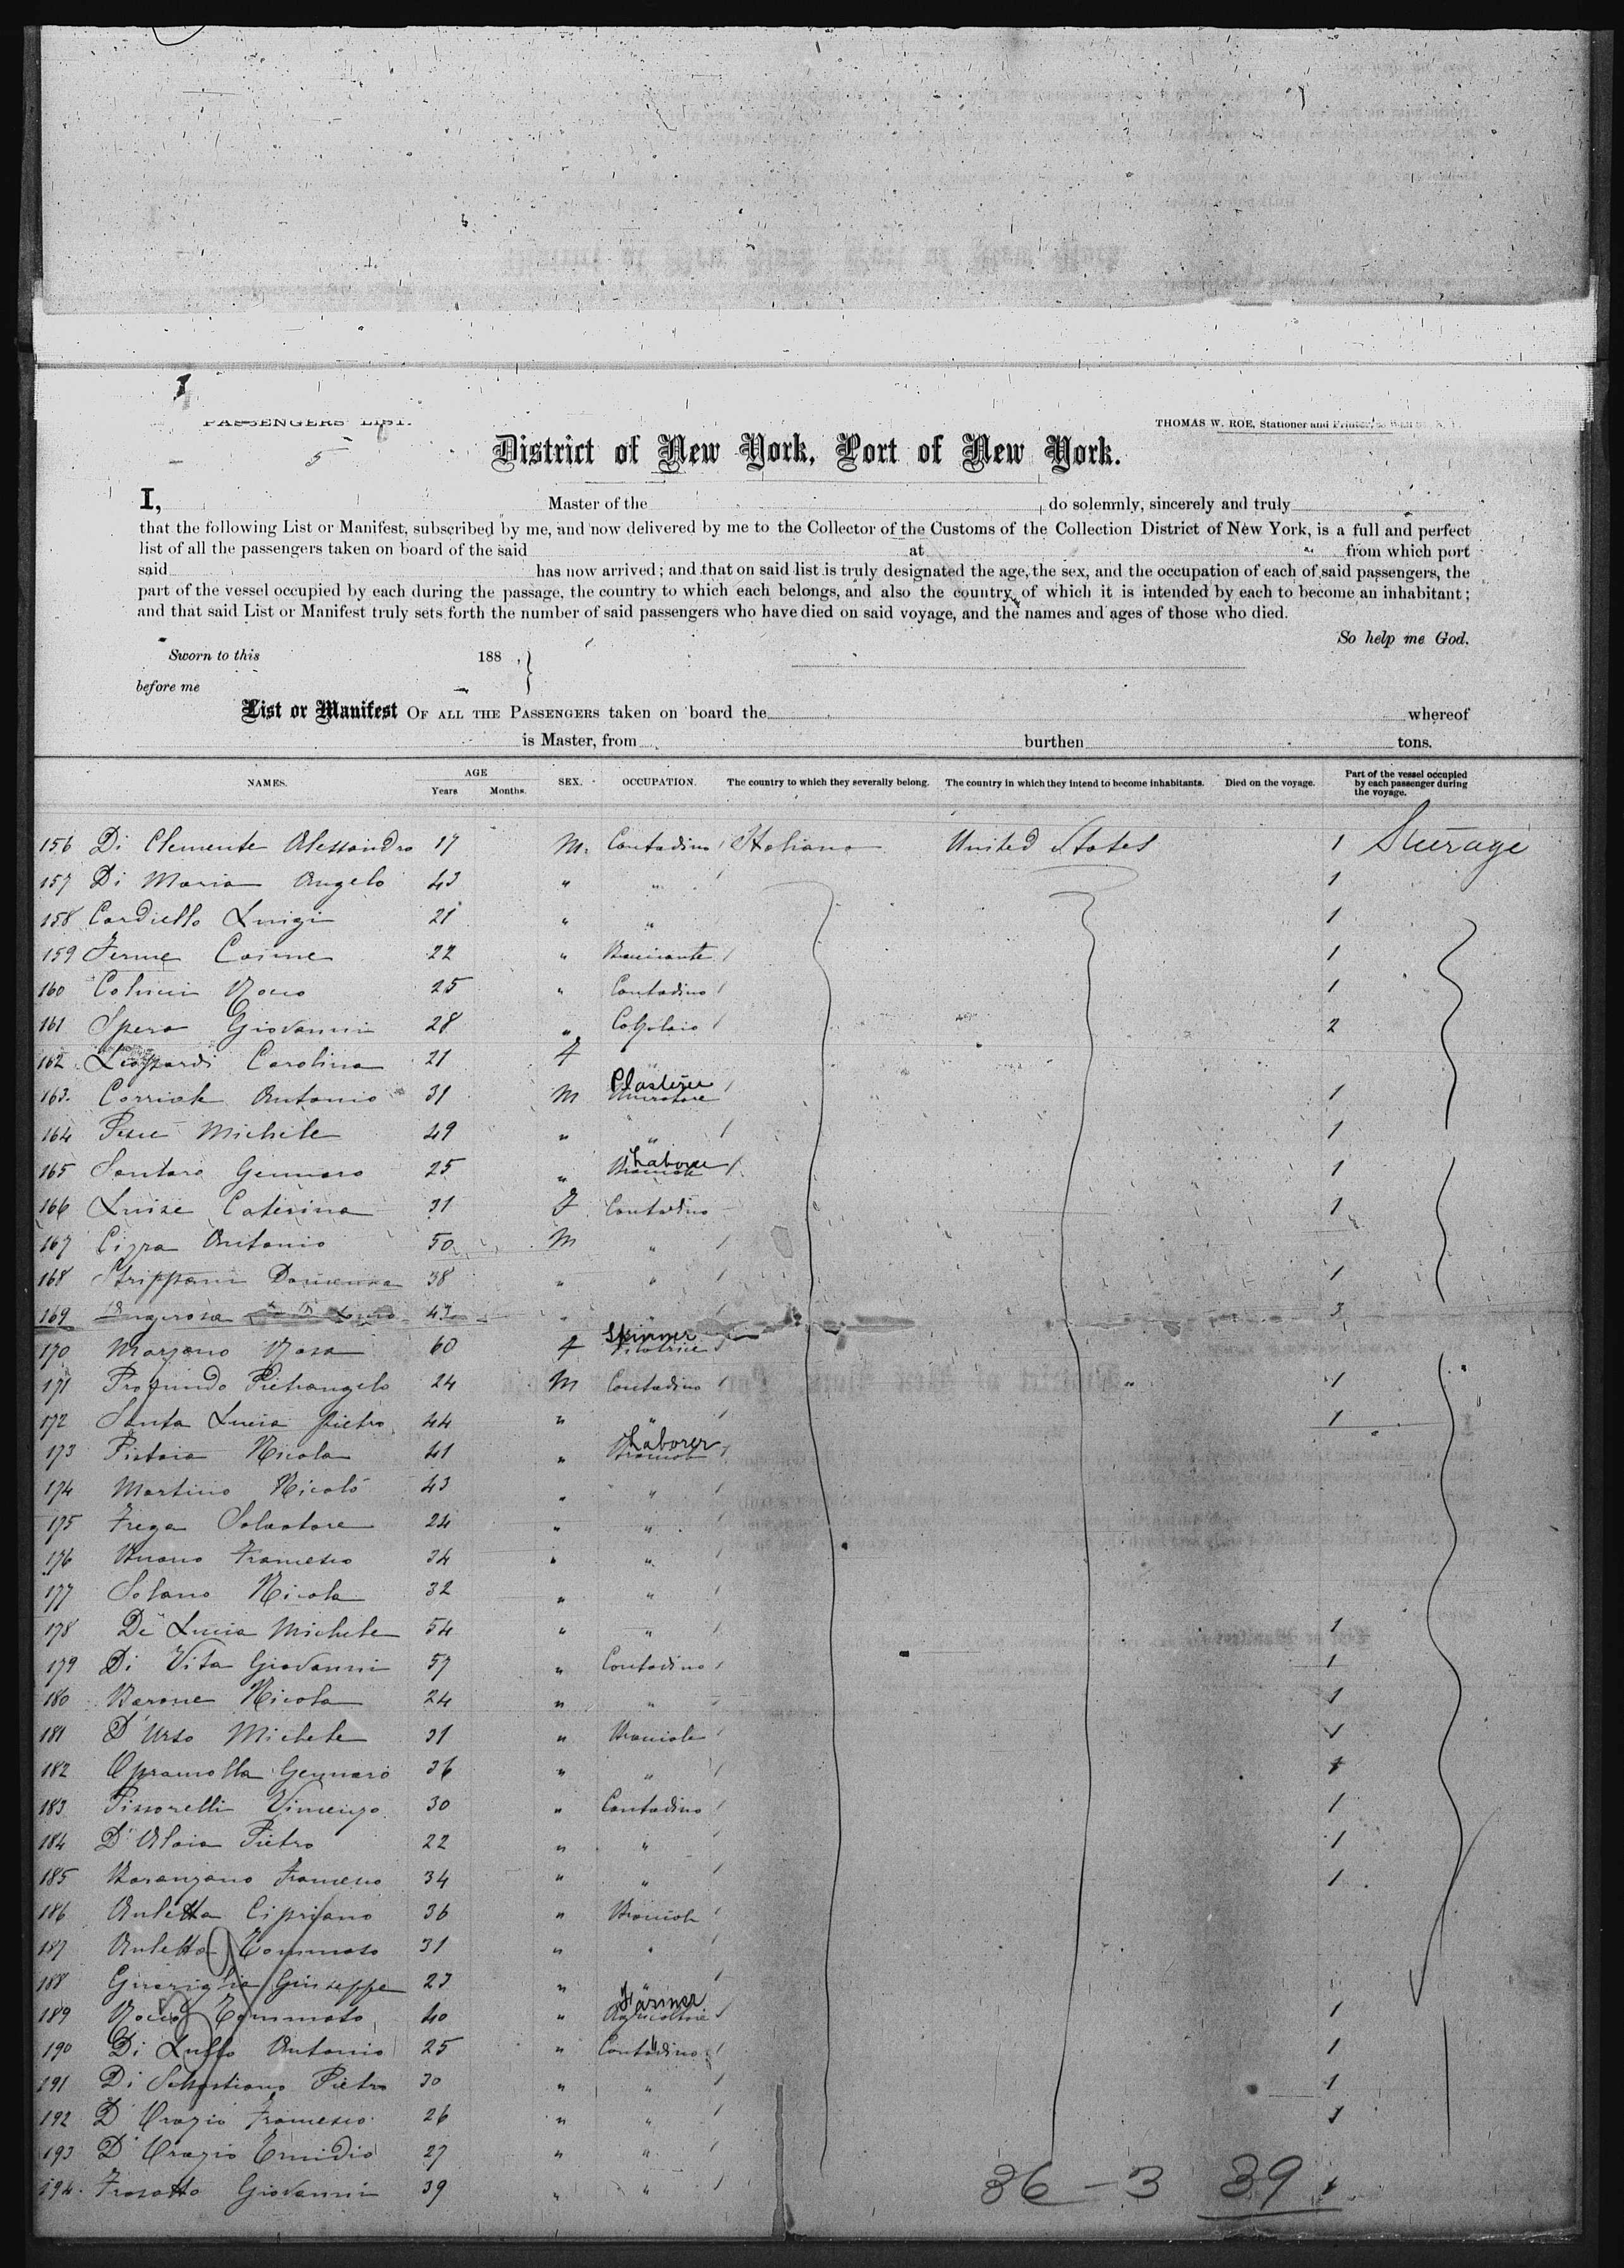 1
PASSENGERS' LIST.
THOMAS W. ROE, Stationer and Printer,
5
District of New York, Port of New York.
I, Master of the do solemnly, sincerely and truly
that the following List or Manifest, subscribed by me, and now delivered by me to the Collector of the Customs of the Collection District of New York, is a full and perfect
list of all the passengers taken on board of the said at from which port
said has now arrived; and that on said list is truly designated the age, the sex, and the occupation of each of said passengers, the
part of the vessel occupied by each during the passage, the country to which each belongs, and also the country of which it is intended by each to become an inhabitant;
and that said List or Manifest truly sets forth the number of said passengers who have died on said voyage, and the names and ages of those who died.
So help me God.
Sworn to this 188
before me
List or Manifest OF ALL THE PASSENGERS taken on board the whereof
is Master, from burthen tons.
NAMES. AGE Years Months. SEX. OCCUPATION. The country to which they severally belong. The country in which they intend to become inhabitants. Died on the voyage. Part of the vessel occupied by each passenger during the voyage.
156 Di Clemente Alessandro 17 M. Contadino Italiano United States 1 Steerage
157 Di Maria Angelo 43 " " 1
158 Cardiello Luigi 21 " " 1
159 Ferme Cosime 22 " 1
160 Rocco 25 " Contadino 1
161 Spera Giovanni 28 " Calzolaio 2
162 Leopardi Carolina 21 F
163 Antonio 31 M Plasterer Muratore 1
164 Pesce Michele 49 " " 1
165 Santoro Gennaro 25 " Laborer 1
166 Luise Caterina 31 F Contadino 1
167 Antonio 50 M "
168 Domenica 38 " " 1
169 43 " 3
170 Marzano Rosa 60 F Spinner Filatrice
171 Profundo Pietrangelo 24 M Contadino 1
172 Santa Lucia Pietro 44 " " 1
173 Pistoia Nicola 41 " Laborer
174 Martino Nicolò 43 " "
175 Frega Salvatore 24 " "
176 Francesco 34 " "
177 Solano Nicola 32 " "
178 De Lucia Michele 54 " " 1
179 Di Vita Giovanni 57 " Contadino 1
180 Barone Nicola 24 " " 1
181 D'Urso Michele 31 " 1
182 Opramolla Gennaro 36 " " 1
183 Vincenzo 30 " Contadino 1
184 D'Aloia Pietro 22 " " 1
185 Baranzano Francesco 34 " " 1
186 Auletta Cipriano 36 "
187 Auletta Tommaso 31 " "
188 Giuseppe 23 " "
189 Rocco Tommaso 40 " Farmer Agricoltore 1
190 Di Lullo Antonio 25 " Contadino 1
191 Di Sebastiano Pietro 30 " " 1
192 D'Orazio Francesco 26 " " 1
193 D'Orazio Emidio 27 " "
194 Frasotto Giovanni 39 " " 1
36 - 3 39